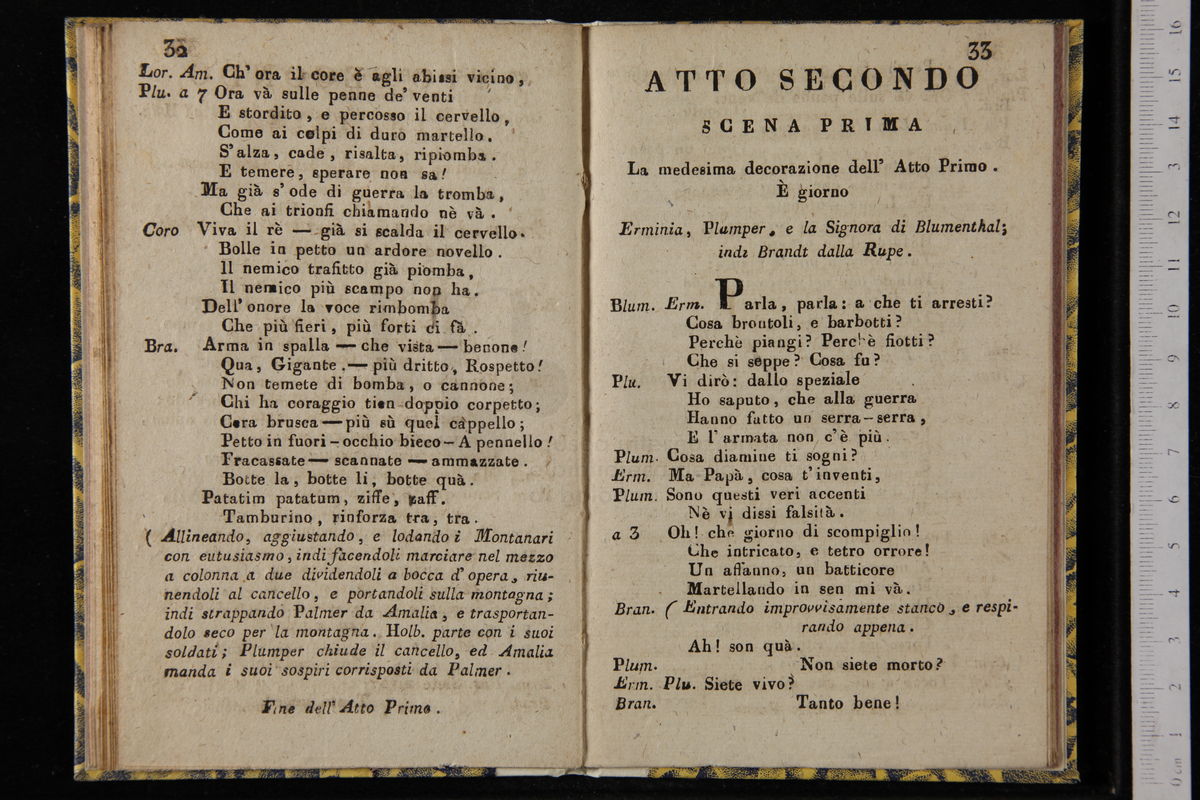 32
Lor. Am. Ch' ora il core è agli abissi vicino,
Plu. a 7 Ora và sulle penne de' venti
E stordito, e percosso il cervello,
Come ai colpi di duro martello.
S' alza, cade, risalta, ripiomba.
E temere, sperare non sa!
Ma già s' ode di guerra la tromba,
Che ai trionfi chiamando nè và.
Coro Viva il rè — già si scalda il cervello.
Bolle in petto un ardore novello.
Il nemico trafitto già piomba,
Il nemico più scampo non ha.
Dell' onore la voce rimbomba
Che più fieri, più forti ci fà.
Bra. Arma in spalla — che vista — benone!
Qua, Gigante. — più dritto, Rospetto!
Non temete di bomba, o cannone;
Chi ha coraggio tien doppio corpetto;
Cera brusca — più sù quel cappello;
Petto in fuori – occhio bieco – A pennello!
Fracassate — scannate — ammazzate.
Botte la, botte li, botte quà.
Patatim patatum, ziffe, zaff.
Tamburino, rinforza tra, tra.
( Allineando, aggiustando, e lodando i Montanari
con eutusiasmo, indi facendoli marciare nel mezzo
a colonna a due dividendoli a bocca d' opera, riu-
nendoli al cancello, e portandoli sulla montagna;
indi strappando Palmer da Amalia, e trasportan-
dolo seco per la montagna. Holb. parte con i suoi
soldati; Plumper chiude il cancello, ed Amalia
manda i suoi sospiri corrisposti da Palmer.
Fine dell' Atto Primo.
33
ATTO SECONDO
SCENA PRIMA
La medesima decorazione dell' Atto Primo.
È giorno
Erminia, Plumper, e la Signora di Blumenthal;
indi Brandt dalla Rupe.
Blum. Erm. Parla, parla: a che ti arresti?
Cosa brontoli, e barbotti?
Perchè piangi? Perchè fiotti?
Che si seppe? Cosa fu?
Plu. Vi dirò: dallo speziale
Ho saputo, che alla guerra
Hanno fatto un serra-serra,
E l' armata non c'è più.
Plum. Cosa diamine ti sogni?
Erm. Ma Papà, cosa t' inventi,
Plum. Sono questi veri accenti
Nè vi dissi falsità.
a 3 Oh! che giorno di scompiglio!
Che intricato, e tetro orrore!
Un affanno, un batticore
Martellando in sen mi và.
Bran. ( Entrando improvvisamente stanco, e respi-
rando appena.
Ah! son quà.
Plum. Non siete morto?
Erm. Plu. Siete vivo?
Bran. Tanto bene!
0 cm 1 2 3 4 5 6 7 8 9 10 11 12 13 14 15 16